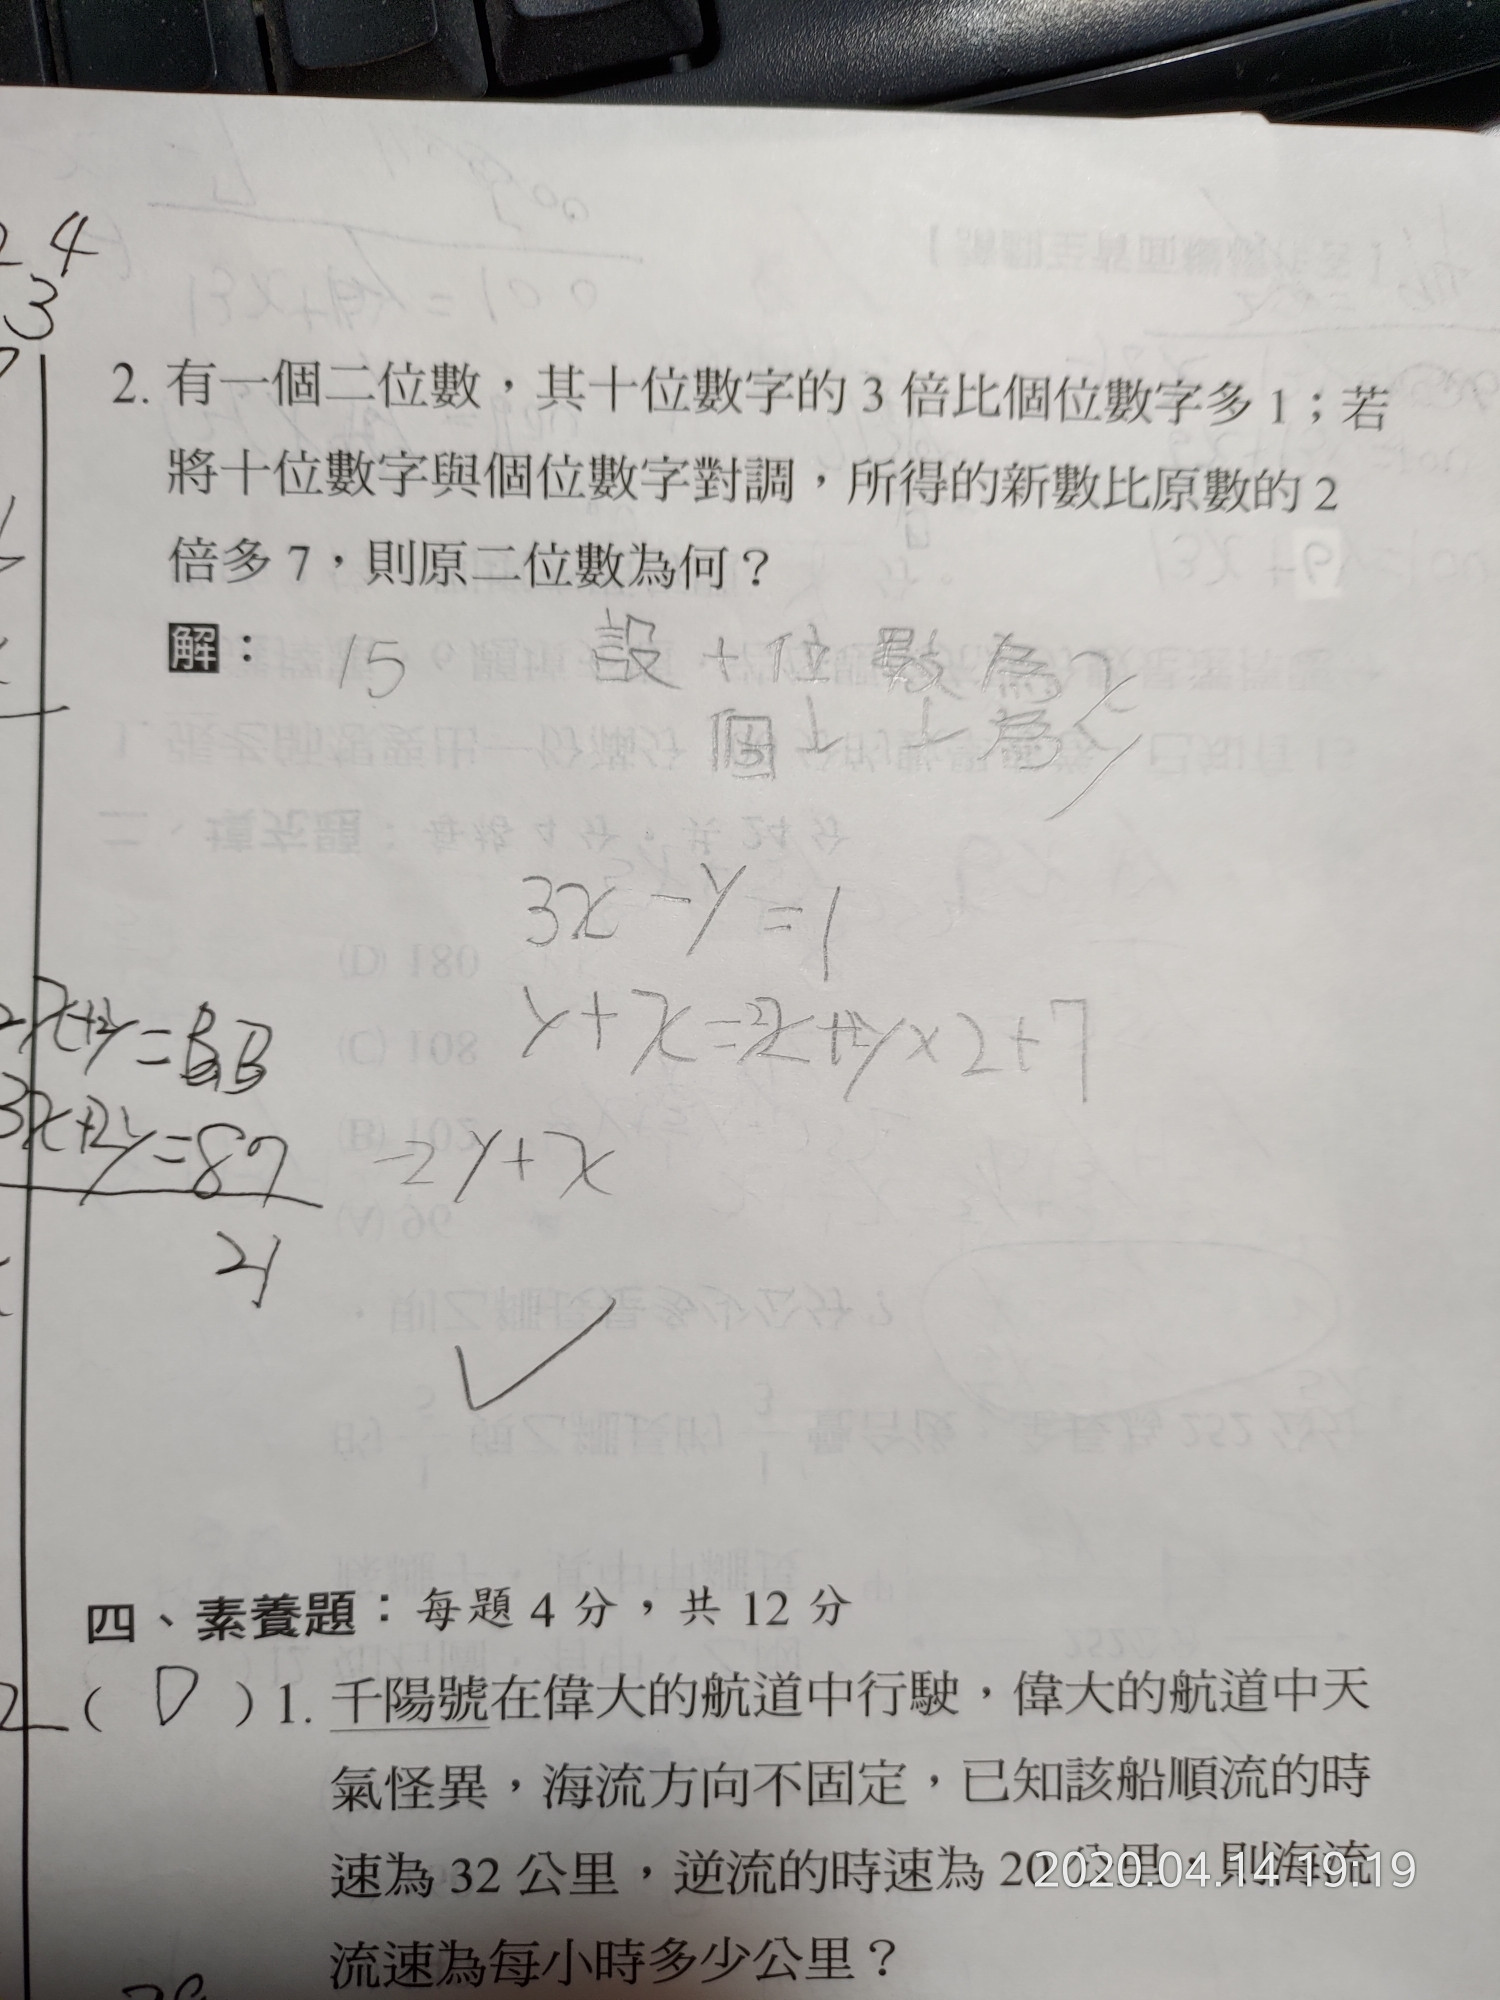 24
3
2. 有一個二位數，其十位數字的 3 倍比個位數字多 1；若
將十位數字與個位數字對調，所得的新數比原數的 2
倍多 7，則原二位數為何？
解： 15 設十位數為x
個〃〃為y
3x-y=1
y+x=2x+2y×2+7
=y+x
2x+y=
3x+2y=87
21
四、素養題：每題 4 分，共 12 分
( D ) 1. 千陽號在偉大的航道中行駛，偉大的航道中天
氣怪異，海流方向不固定，已知該船順流的時
速為 32 公里，逆流的時速為 20 公里，則海流
流速為每小時多少公里？
2020.04.14 19:19